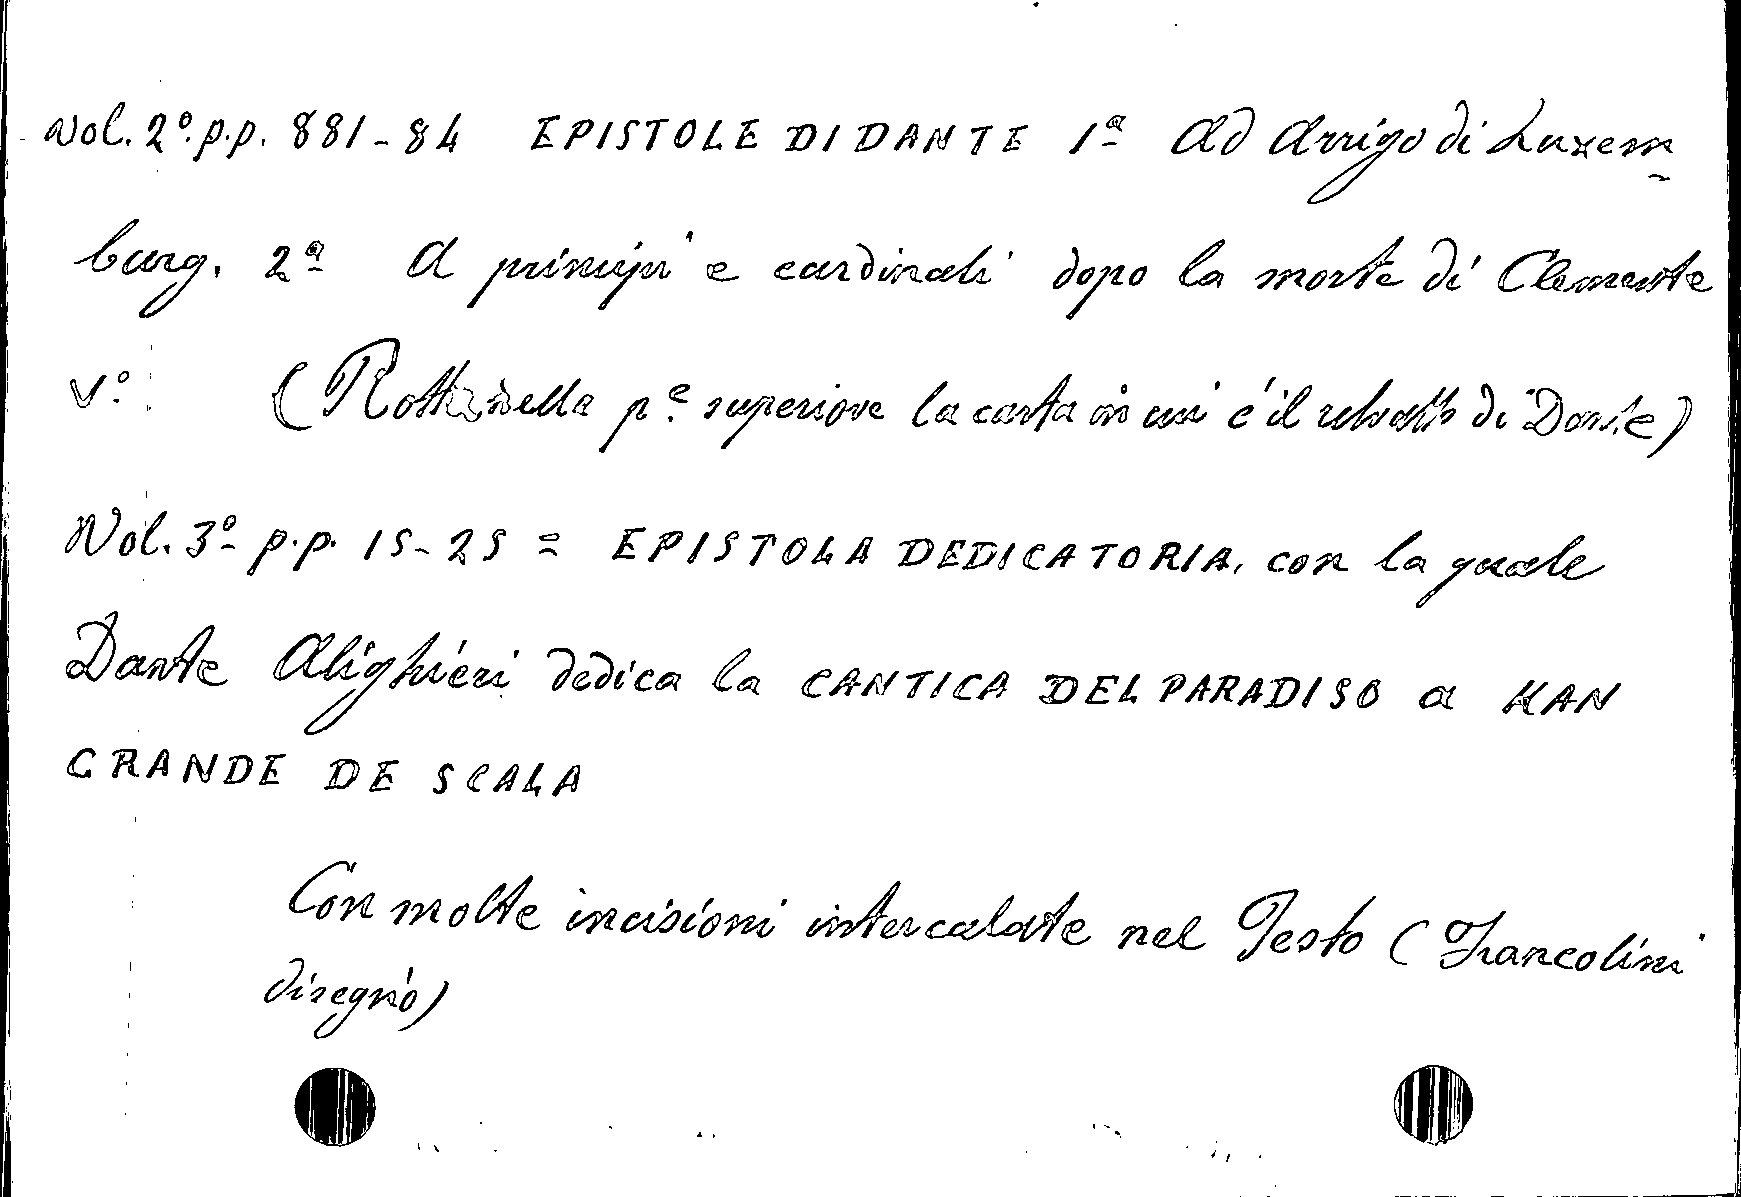 Vol. 2º. p.p. 881-84 EPISTOLE DI DANTE 1ª Ad Arrigo di Luxem-
burg. 2ª A principi e cardinali dopo la morte di Clemente
Vº. (Rotta nella pᵉ superiore la carta in cui é il ritratto di Dante)
Vol. 3º p.p. 15-25 = EPISTOLA DEDICATORIA, con la quale
Dante Alighieri dedica la CANTICA DEL PARADISO a KAN
GRANDE DE SCALA
Con molte incisioni intercalate nel Testo (Francolini
disegnò)